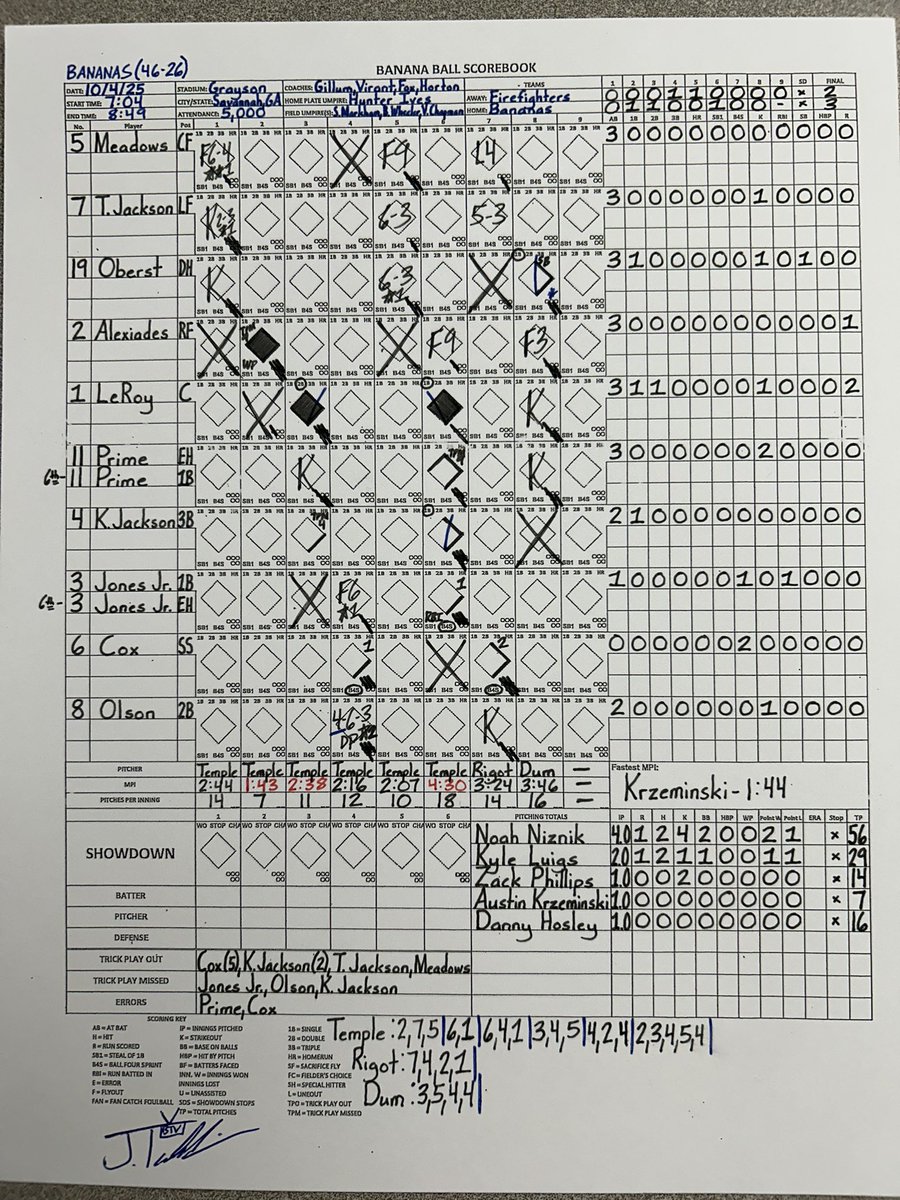 BANANAS (46-26)
BANANA BALL SCOREBOOK
DATE: 10/4/25 STADIUM: Grayson COACHES: Gillum, Virant, Fox, Horton - TEAMS 1 2 3 4 5 6 7 8 9 SD FINAL
START TIME: 7:04 CITY/STATE: Savannah, GA HOME PLATE UMPIRE: Hunter Ives AWAY: Firefighters 0 0 0 1 1 0 0 0 0 x 2
END TIME: 8:49 ATTENDANCE: 5,000 FIELD UMPIRE(S): HOME: Bananas 0 1 1 0 0 1 0 0 - x 3
No. Player Pos 1 2 3 4 5 6 7 8 9 AB 1B 2B 3B HR SB1 B4S K RBI SB HBP R
5 Meadows CF F6-4 #1 F9 L4 3 0 0 0 0 0 0 0 0 0 0 0
7 T.Jackson LF K 2-3 #1 6-3 5-3 3 0 0 0 0 0 0 1 0 0 0 0
19 Oberst DH K 6-3 #1 SB 3 1 0 0 0 0 0 1 0 1 0 0
2 Alexiades RF WP F9 F3 3 0 0 0 0 0 0 0 0 0 0 1
1 LeRoy C K 3 1 1 0 0 0 0 1 0 0 0 2
11 Prime EH K K 3 0 0 0 0 0 0 2 0 0 0 0
6th- 11 Prime 1B
4 K.Jackson 3B 2 1 0 0 0 0 0 0 0 0 0 0
3 Jones Jr. 1B F6 #1 1 RBI 1 0 0 0 0 0 1 0 1 0 0 0
6th- 3 Jones Jr. EH
6 Cox SS 1 2 0 0 0 0 0 0 2 0 0 0 0 0
8 Olson 2B 4-6-3 DP #2 K 2 0 0 0 0 0 0 1 0 0 0 0
PITCHER Temple Temple Temple Temple Temple Temple Rigot Dum — Fastest MPI:
MPI 2:44 1:43 2:38 2:16 2:07 4:30 3:24 3:46 — Krzeminski - 1:44
PITCHES PER INNING 14 7 11 12 10 18 14 16 —
1 2 3 4 5 6 PITCHING TOTALS IP R H K BB HBP WP Point W Point L ERA Stop TP
SHOWDOWN
WO STOP CHA WO STOP CHA WO STOP CHA WO STOP CHA WO STOP CHA WO STOP CHA
Noah Niznik 4.0 1 2 4 2 0 0 2 1 x 56
Kyle Luigs 2.0 1 2 1 1 0 0 1 1 x 29
Zack Phillips 1.0 0 0 2 0 0 0 0 0 x 14
BATTER Austin Krzeminski 1.0 0 0 0 0 0 0 0 0 x 7
PITCHER Danny Hosley 1.0 0 0 0 0 0 0 0 0 x 16
DEFENSE
TRICK PLAY OUT Cox(5), K.Jackson(2), T.Jackson, Meadows
TRICK PLAY MISSED Jones Jr., Olson, K. Jackson
ERRORS Prime, Cox
SCORING KEY
AB = AT BAT IP = INNINGS PITCHED 1B = SINGLE
H = HIT K = STRIKEOUT 2B = DOUBLE
R = RUN SCORED BB = BASE ON BALLS 3B = TRIPLE
SB1 = STEAL OF 1B HBP = HIT BY PITCH HR = HOMERUN
B4S = BALL FOUR SPRINT BF = BATTERS FACED SF = SACRIFICE FLY
RBI = RUN BATTED IN INN. W = INNINGS WON FC = FIELDER'S CHOICE
E = ERROR INNINGS LOST SH = SPECIAL HITTER
F = FLYOUT U = UNASSISTED SDS = SHOWDOWN STOPS L = LINEOUT
FAN = FAN CATCH FOULBALL TP = TOTAL PITCHES TPO = TRICK PLAY OUT
TPM = TRICK PLAY MISSED
Temple: 2,7,5|6,1|6,4,1|3,4,5|4,2,4|2,3,4,5,4|
Rigot: 7,4,2,1|
Dum: 3,5,4,4|
BTV